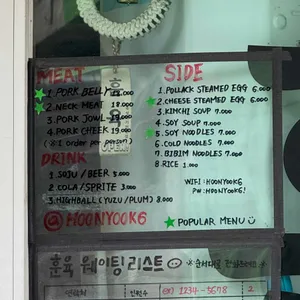 MEAT
★ 1. PORK BELLY 17.000
★ 2. NECK MEAT 18.000
3. PORK JOWL 19.000
4. PORK CHEEK 19.000
(※ 1 order per person)
DRINK
1. SOJU / BEER 5.000
2. COLA / SPRITE 3.000
3. HIGHBALL (YUZU / PLUM) 8.000
@HOONYOOK6
SIDE
1. POLLACK STEAMED EGG 6.000
★ 2. CHEESE STEAMED EGG 6.000
3. KIMCHI SOUP 7.000
4. SOY SOUP 7.000
★ 5. SOY NOODLES 7.000
6. COLD NOODLES 7.000
7. BIBIM NOODLES 7.000
8. RICE 1.000
WIFI: HOONYOOK6
PW: HOONYOOK6
★ POPULAR MENU
훈육 웨이팅 리스트
연락처 인원수 010 1234-5678 2